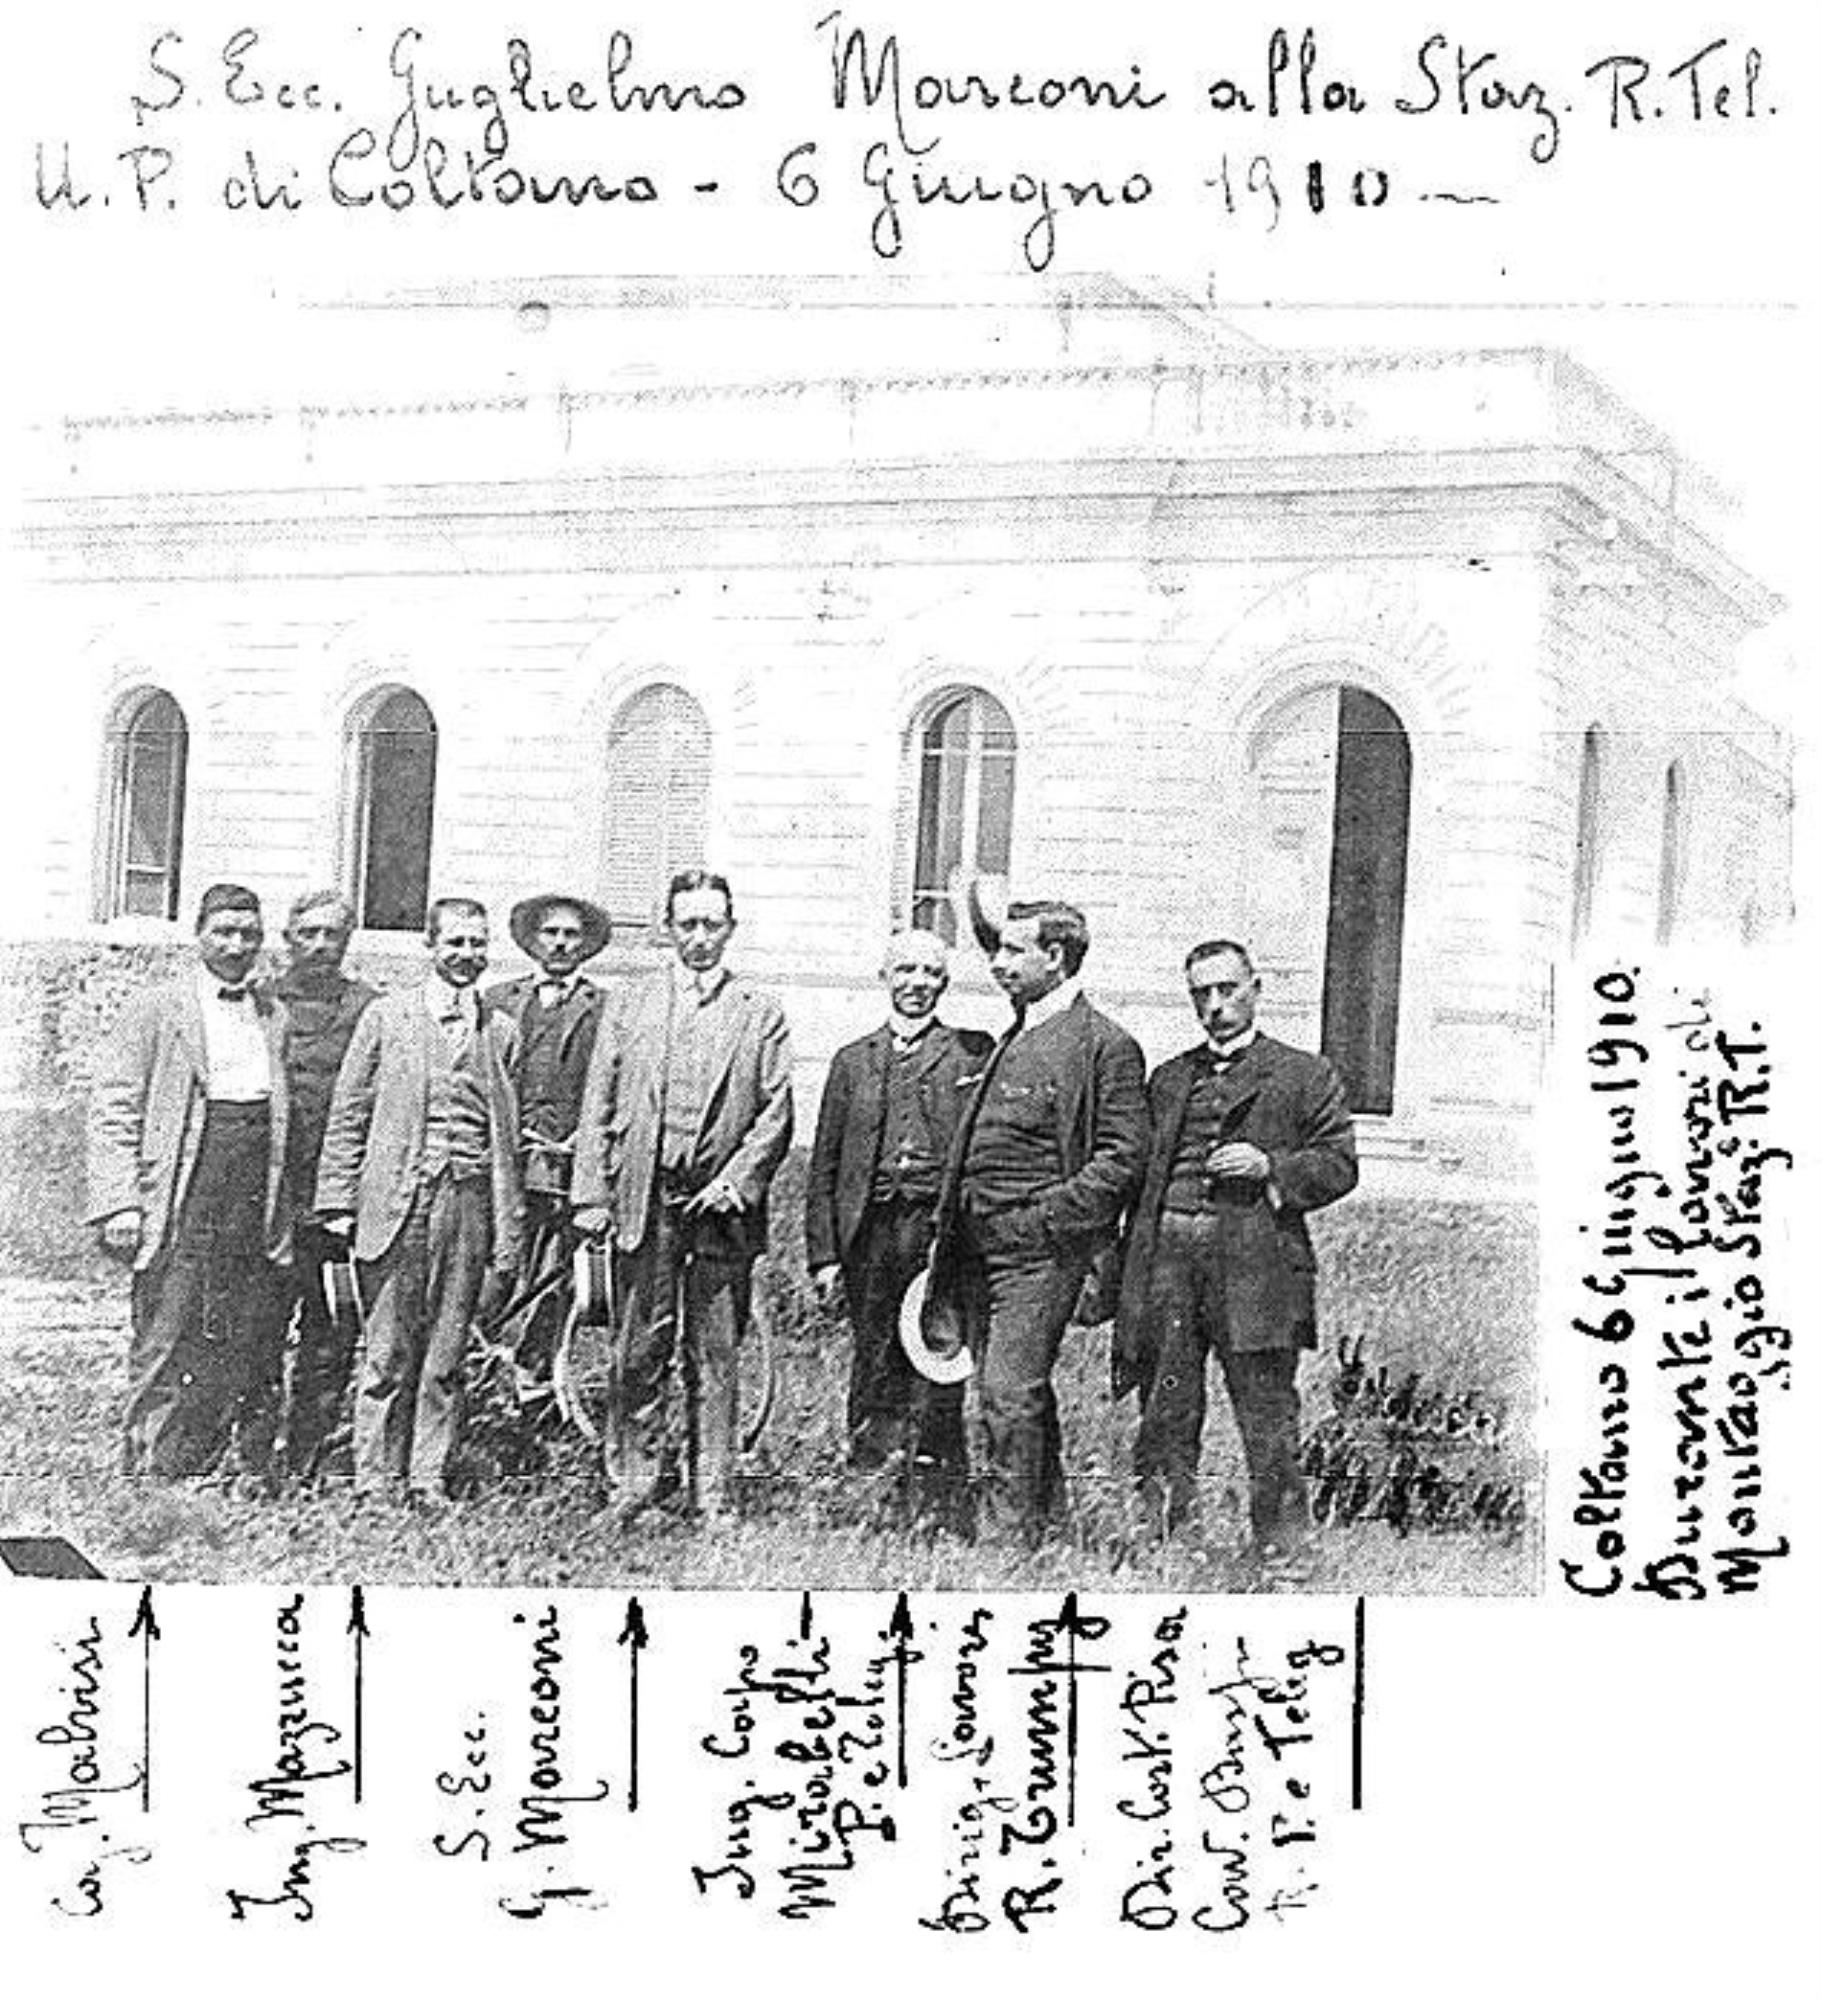 S. Ecc. Guglielmo Marconi alla Staz. R. Tel.
U. P. di Coltano - 6 Giugno 1910
Coltano 6 Giugno 1910.
Durante i lavori di
Montaggio Staz. R.T.
Ing. Mazzucca
S. Ecc.
G. Marconi
Ing. Capo
Mirabelli
P. e Teleg.
Dirig. Lavori
R. Trumpy
Dir. Cost. Pisa
Cav.
P. e Teleg